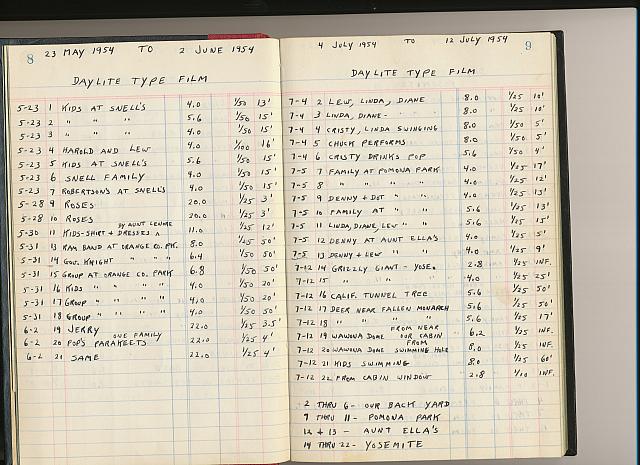 8 23 MAY 1954 TO 2 JUNE 1954
DAYLITE TYPE FILM
5-23 1 KIDS AT SNELL'S 4.0 1/50 13'
5-23 2 " " " 5.6 1/50 15'
5-23 3 " " " 4.0 1/50 15'
5-23 4 HAROLD AND LEW 4.0 1/100 16'
5-23 5 KIDS AT SNELL'S 5.6 1/50 15'
5-23 6 SNELL FAMILY 4.0 1/50 15'
5-23 7 ROBERTSONS AT SNELLS 4.0 1/50 15'
5-28 9 ROSES 20.0 1/25 3'
5-28 10 ROSES 20.0 " 1/25 3'
BY AUNT LENORE
5-30 11 KIDS-SHIRT + DRESSES ^ 11.0 1/25 12'
5-31 13 RAM BAND AT ORANGE CO. PK. 8.0 1/25 50'
5-31 14 GOV. KNIGHT " " " 6.4 1/50 50'
5-31 15 GROUP AT ORANGE CO. PARK 6.8 1/50 50'
5-31 16 KIDS " " " " 4.0 1/50 20'
5-31 17 GROUP " " " " 4.0 1/50 20'
5-31 18 GROUP " " " " 4.0 1/50 50'
6-2 19 JERRY 22.0 1/25 3.5'
ONE FAMILY
6-2 20 POP'S PARAKEETS 22.0 1/25 4'
6-2 21 SAME 22.0 1/25 4'
4 JULY 1954 TO 12 JULY 1954 9
DAYLITE TYPE FILM
7-4 2 LEW, LINDA, DIANE 8.0 1/25 10'
7-4 3 LINDA, DIANE- 8.0 1/25 10'
7-4 4 CRISTY, LINDA SWINGING 8.0 1/50 5'
7-4 5 CHUCK PERFORMS 8.0 1/50 5'
7-4 6 CRISTY DRINKS POP 5.6 1/50 4'
7-5 7 FAMILY AT POMONA PARK 4.0 1/25 17'
7-5 8 " " " " 4.0 1/25 12'
7-5 9 DENNY + DOT " " 4.0 1/25 13'
7-5 10 FAMILY AT " " 5.6 1/25 13'
7-5 11 LINDA, DIANE, LEW " " 5.6 1/25 15'
7-5 12 DENNY AT AUNT ELLA'S 4.0 1/25 5'
7-5 13 DENNY + LEW " " 4.0 1/25 9'
7-12 14 GRIZZLY GIANT - YOSE. 2.8 1/25 INF.
7-12 15 " " " 4.0 1/25 25'
7-12 16 CALIF. TUNNEL TREE 5.6 1/25 50'
7-12 17 DEER NEAR FALLEN MONARCH 5.6 1/25 50'
7-12 18 " " " " 5.6 1/25 17'
FROM NEAR
7-12 19 WAWONA DOME OUR CABIN 6.2 1/25 INF.
FROM
7-12 20 WAWONA DOME SWIMMING HOLE 8.0 1/25 INF.
7-12 21 KIDS SWIMMING 8.0 1/25 60'
7-12 22 FROM CABIN WINDOW 2.8 1/10 INF.
2 THRU 6- OUR BACK YARD
7 THRU 11- POMONA PARK
12 + 13 - AUNT ELLA'S
14 THRU 22- YOSEMITE